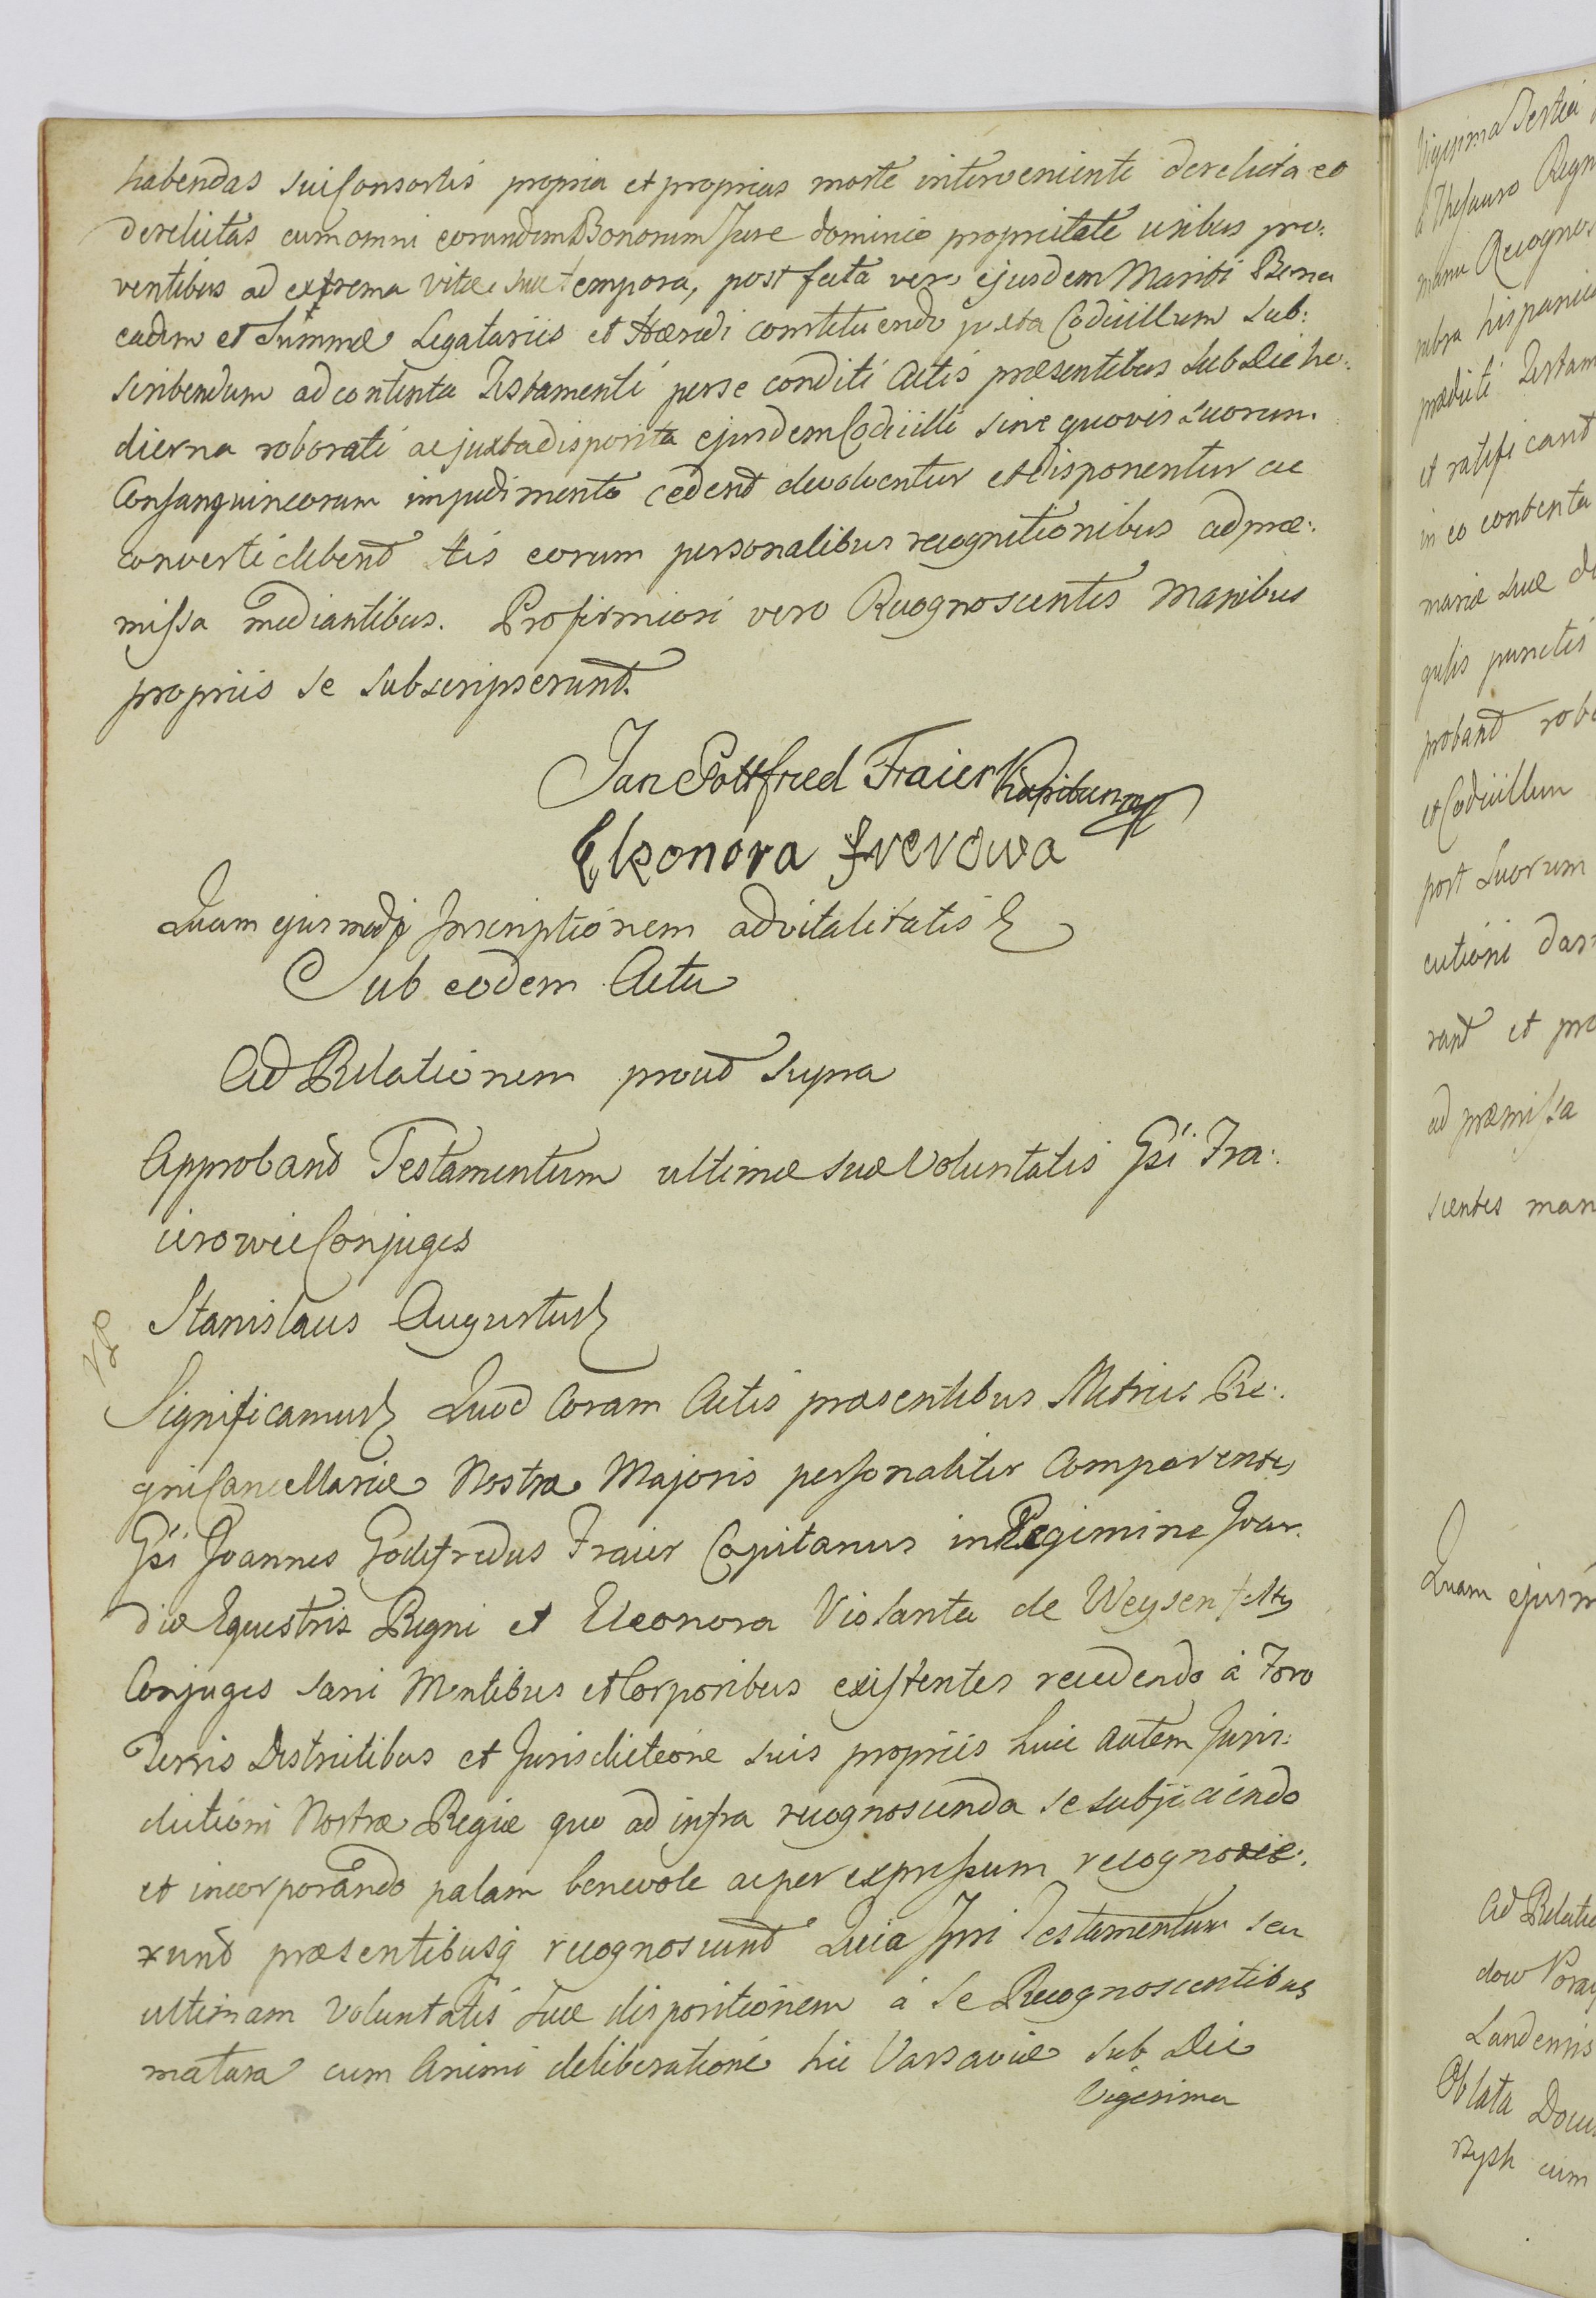 habendas sui Consortis propria et proprias morte interveniente derelicta et
derelictas cum omni eorundem Bonorum Jure dominio proprietate usibus pro:
ventibus ad extrema vitæ suæ tempora, post fata vero ejusdem Mariti Bona
eadem et Summæ Legatariis et Hæredi constituendo juxta Codicillum sub:
scribendum ad contenta Testamenti per se conditi Actis præsentibus sub Die ho:
dierna roborati ac juxta disposita ejusdem Codicilli sine quovis suorum
Consanguineorum impedimento cedent devolventur et disponentur ac
converti debent His eorum personalibus recognitionibus ad præ:
missa mediantibus. Pro firmiori vero Recognoscentes Manibus
propriis se subscripserunt.
Jan Gottfried Fraier Kapitan mpp
Eleonora Frerowa
Quam ejusmodi Inscriptionem advitalitatis
Sub eodem Actu
Ad Relationem prout supra
Approband Testamentum ultimæ suæ Voluntatis Gsi Fra:
ierowie Conjuges
Stanislaus Augustus
Significamus Quod Coram Actis præsentibus Metrices Re:
gni Cancellariæ Nostræ Majoris personaliter Comparentes
Gsi Joannes Godefredus Fraier Capitanus in Regimine Gvar:
diæ Equestris Regni et Eleonora Violanta de Weysenfelty
Conjuges sani Mentibus et Corporibus existentes recedendo à Foro
Terris Districtibus et Jurisdictione suis propriis huic autem Juris:
dictioni Nostræ Regiæ quo ad infra recognoscenda se subjiciendo
et incorporando palam benevole ac per expressum recognove:
runt præsentibusq recognoscunt Quia Ipsi Testamentum seu
ultimam Voluntatis suæ dispositionem a se Recognoscentibus
matura cum Animi deliberatione hic Varsaviæ sub Die
Vigesima
Vigesima Tertia
à Thesauro Regn
manu Recognos
rubra hispanica
prædicti Testam
et ratificant
in eo contenta
mariæ suæ de
gulis punctis
probant robo
et Codicillum
post suorum
cutioni dar
rant et pro
ad præmissa
scentes man
Quam ejusm
Ad Relatio
dow Poray
Landensis
Oblata Docu
Rysk cum